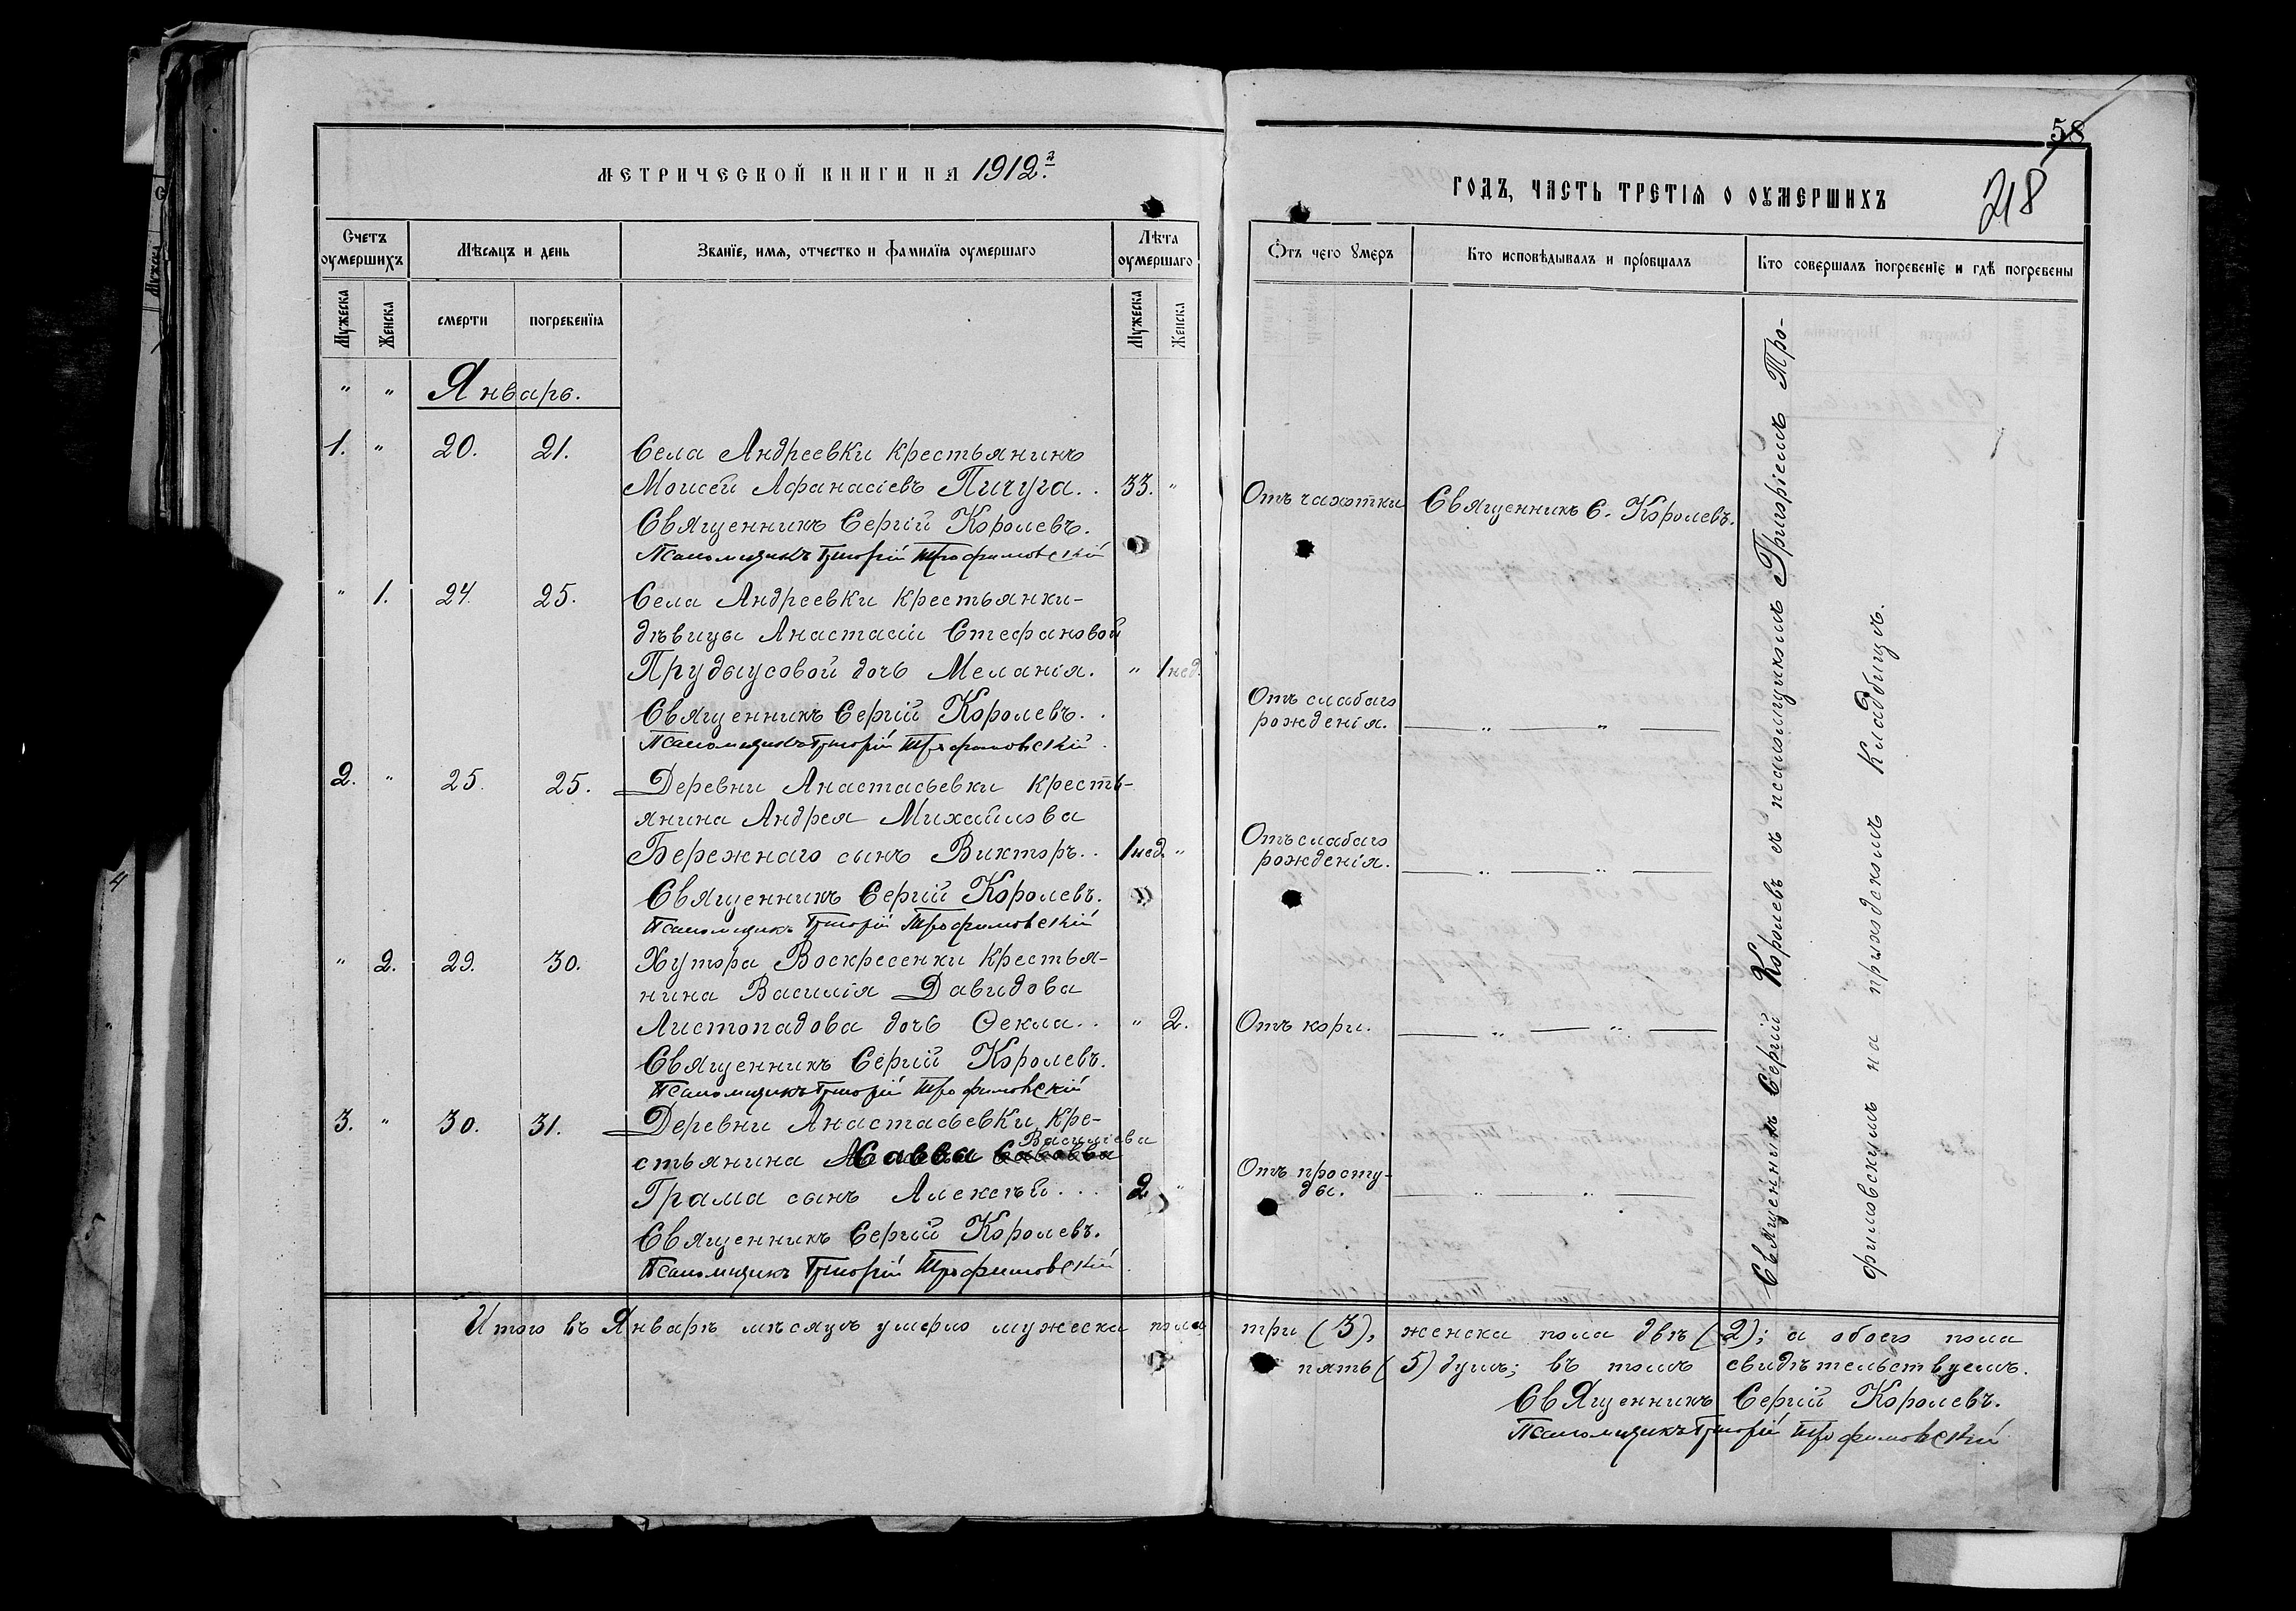 МЕТРИЧЕСКОЙ КНИГИ НА 1912 г.
Счетъ оумершихъ
Мѣсяцъ и день
Званїе, имя, отчество и фамилїя оумершаго
Лѣта оумершаго
Мужеска
Женска
смерти
погребенїя
Мужеска
Женска
" " Январь.
1. " 20. 21. Села Андреевки крестьянинъ
Моисей Афанасіевъ Пичуга. . 33. "
Священникъ Сергій Королевъ.
Псаломщикъ Григорій Трофимовскій
" 1. 24. 25. Села Андреевки крестьянки-
дѣвицы Анастасіи Стефановой
Прудыусовой дочь Меланія. " 1 нед.
Священникъ Сергій Королевъ. .
Псаломщикъ Григорій Трофимовскій.
2. " 25. 25. Деревни Анастасьевки кресть-
янина Андрея Михайлова
Бережнаго сынъ Викторъ. . 1 нед. "
Священникъ Сергій Королевъ.
Псаломщикъ Григорій Трофимовскій
" 2. 29. 30. Хутора Воскресенки крестья-
нина Василія Давидова
Листопадова дочь Ѳекла. . " 2.
Священникъ Сергій Королевъ.
Псаломщикъ Григорій Трофимовскій
3. " 30. 31. Деревни Анастасьевки кре-
Василіева
стьянина Савва
Грама сынъ Алексѣй. . . 2. "
Священникъ Сергій Королевъ.
Псаломщикъ Григорій Трофимовскій.
Итого въ Январѣ мѣсяцѣ умерло мужеска пола
58
218
ГОДЪ, ЧАСТЬ ТРЕТІЯ О ОУМЕРШИХЪ
Ѿтъ чего умеръ
Кто исповѣдывалъ и прїобщалъ
Кто совершалъ погребенїе и гдѣ погребены
Отъ чахотки
Священникъ С. Королевъ.
Отъ слабаго
рожденія. — " — " —
Отъ слабаго
рожденія. — " — " —
Отъ кори. — " — " —
Отъ просту-
ды. — " — " —
Священникъ Сергій Королевъ съ псаломщикомъ Григоріемъ Тро-
фимовскимъ на приходскомъ кладбищѣ.
три (3), женска пола двѣ (2); а обоего пола
пять (5) душъ; въ томъ свидѣтельствуемъ.
Священникъ Сергій Королевъ.
Псаломщикъ Григорій Трофимовскій